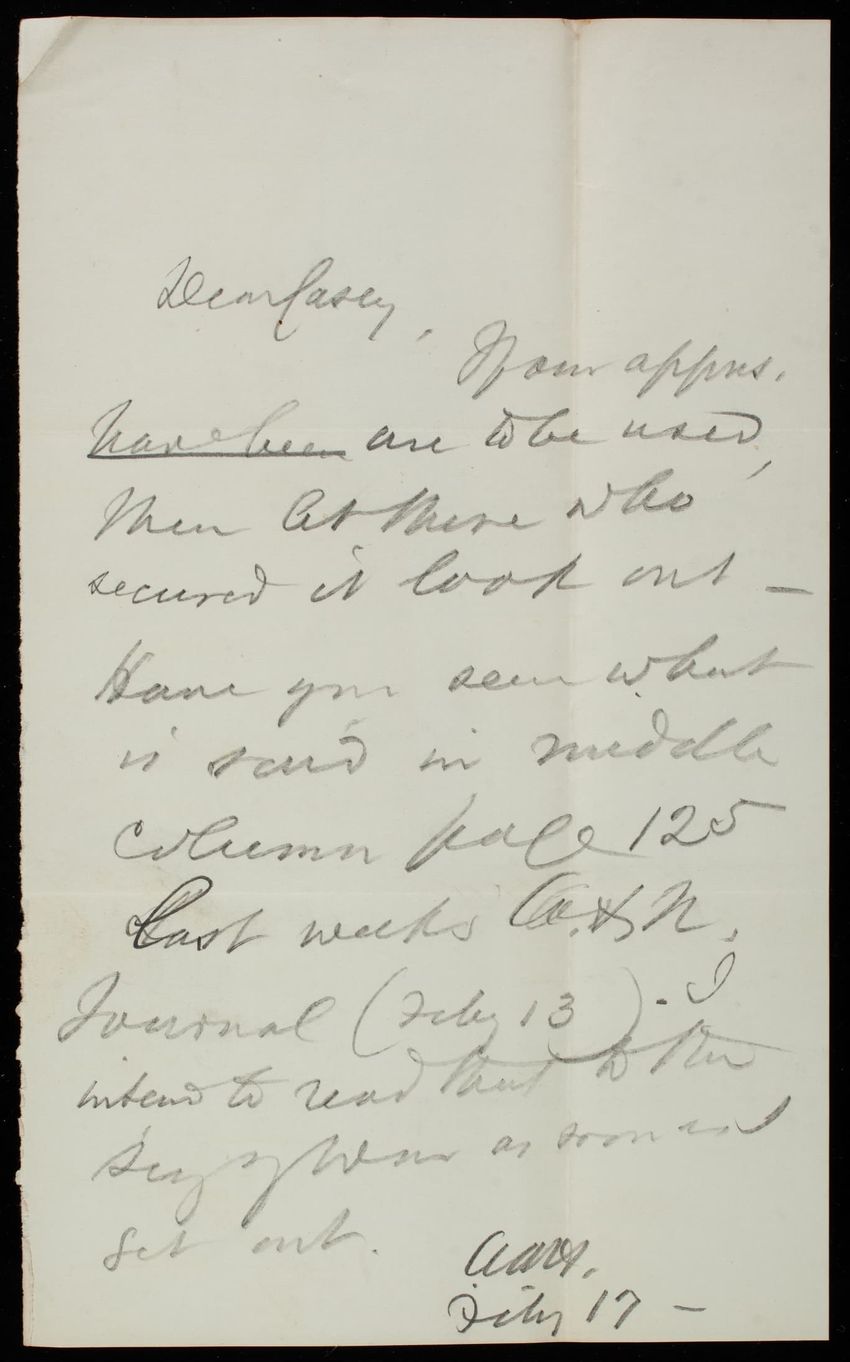 Dear Casey,
If our appns.
have been are to be used,
then let those who
secured it look out —
Have you seen what
is said in middle
column page 125
Last weeks A. & N.
Journal (Feby 13). I
intend to read that to the
Secy of War as soon as I
get out.
Feby 17 —